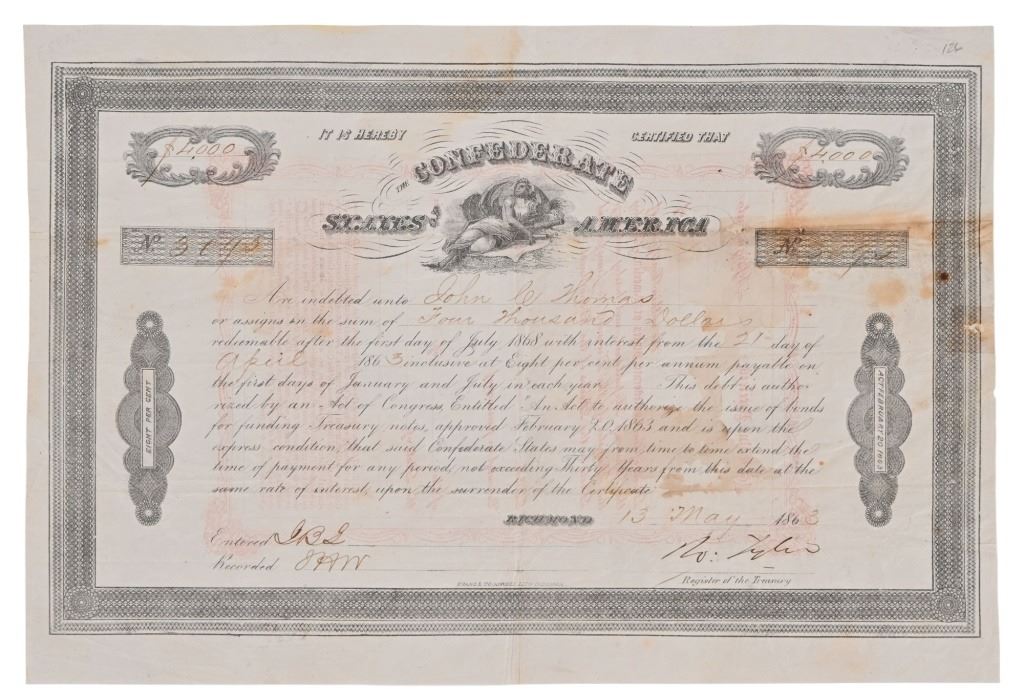 126
IT IS HEREBY CERTIFIED THAT
$4,000 $4000
THE CONFEDERATE
STATES OF AMERICA
No. No.
Are indebted unto John C Thomas
or assigns in the sum of Four Thousand Dollars
redeemable after the first day of July 1868 with interest from the 21 day of
April 1863 inclusive at Eight per cent per annum payable on
the first days of January and July in each year This debt is autho-
rized by an Act of Congress, Entitled "An Act to authorize the issue of bonds
for funding Treasury notes, approved February 20, 1863 and is upon the
express condition, that said Confederate States may from time to time extend the
time of payment for any period, not exceeding Thirty Years from this date at the
same rate of interest, upon the surrender of the Certificate
EIGHT PER CENT
ACT FEBRUARY 20 1863
RICHMOND 13 May 1863
Entered
Recorded
Ro: Tyler
Register of the Treasury